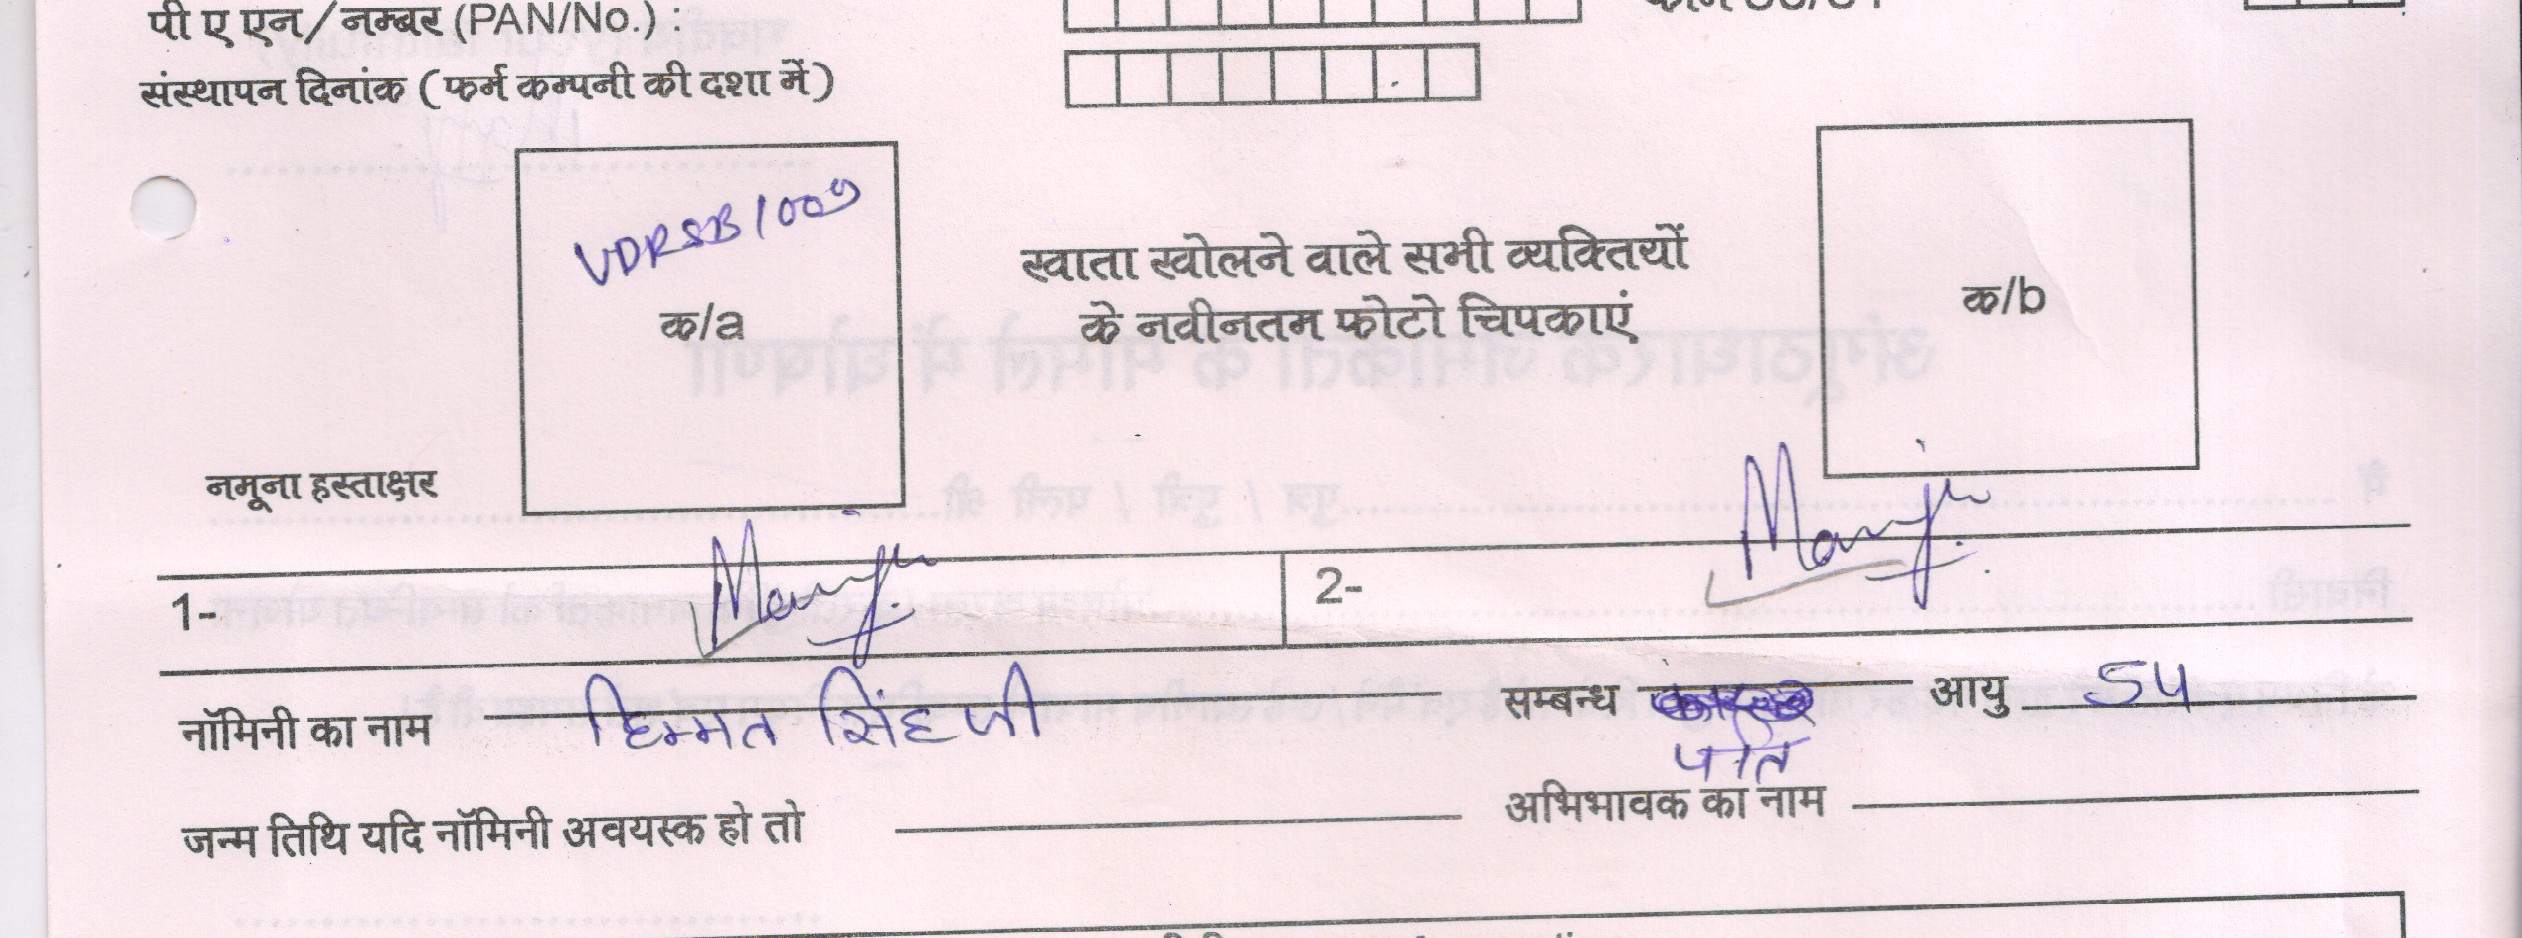 पी ए एन/नम्बर (PAN/No.) :
संस्थापन दिनांक (फर्म कम्पनी की दशा में)
VDRSB1009
क/a
खाता खोलने वाले सभी व्यक्तियों
के नवीनतम फोटो चिपकाएं
क/b
नमूना हस्ताक्षर
1- Manju
2- Manju
नॉमिनी का नाम हिम्मत सिंह जी सम्बन्ध पति आयु 54
जन्म तिथि यदि नॉमिनी अवयस्क हो तो अभिभावक का नाम